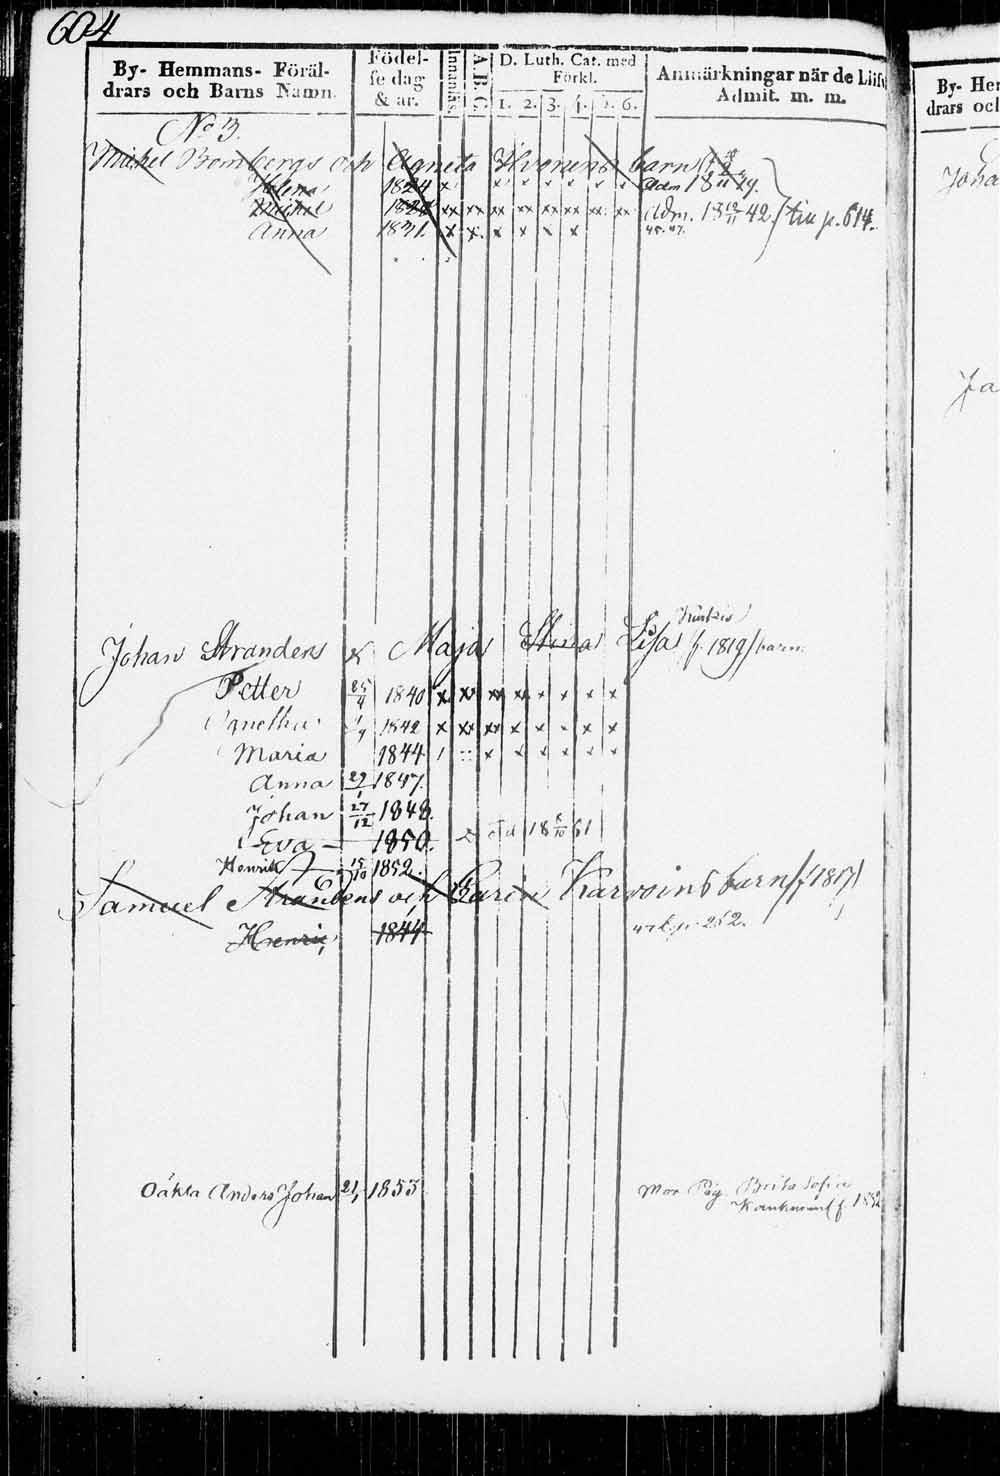 604
By- Hemmans- Föräl-
drars och Barns Namn.
Födel-
se dag
& år.
Innanläs.
A. B. C.
D. Luth. Cat. med
Förkl.
1. 2. 3. 4. 5. 6.
Anmärkningar när de Läsa
Admit. m. m.
By- Hem
drars och
No 3.
Michel Bombergs och Agneta barn
Helena 1824 x x x x x x x adm 18
Michel xx xx xx xx xx xx xx xx Adm. 18 12/11 42. p. 614.
Anna 1831. x x x x x x x 45. 47.
Joha
Johan Stranders & Maja Stina Lisa f. 1819 / barn.
Petter 25/4 1840 x xx xx xx x x x x
Agnetha 1842 x xx xx x x x x x
Maria 1844 x x x x x x
Anna 29/1 1847.
Johan 27/12 1848.
Eva 1850.
Henrik 15/10 1852.
Samuel Strandens och Carin Karvoins barn f 1817
Henric 1844 p. 252.
Oäkta Anders Johan 21/1 1853 Mor Pig. Brita Sofia
f. 1832